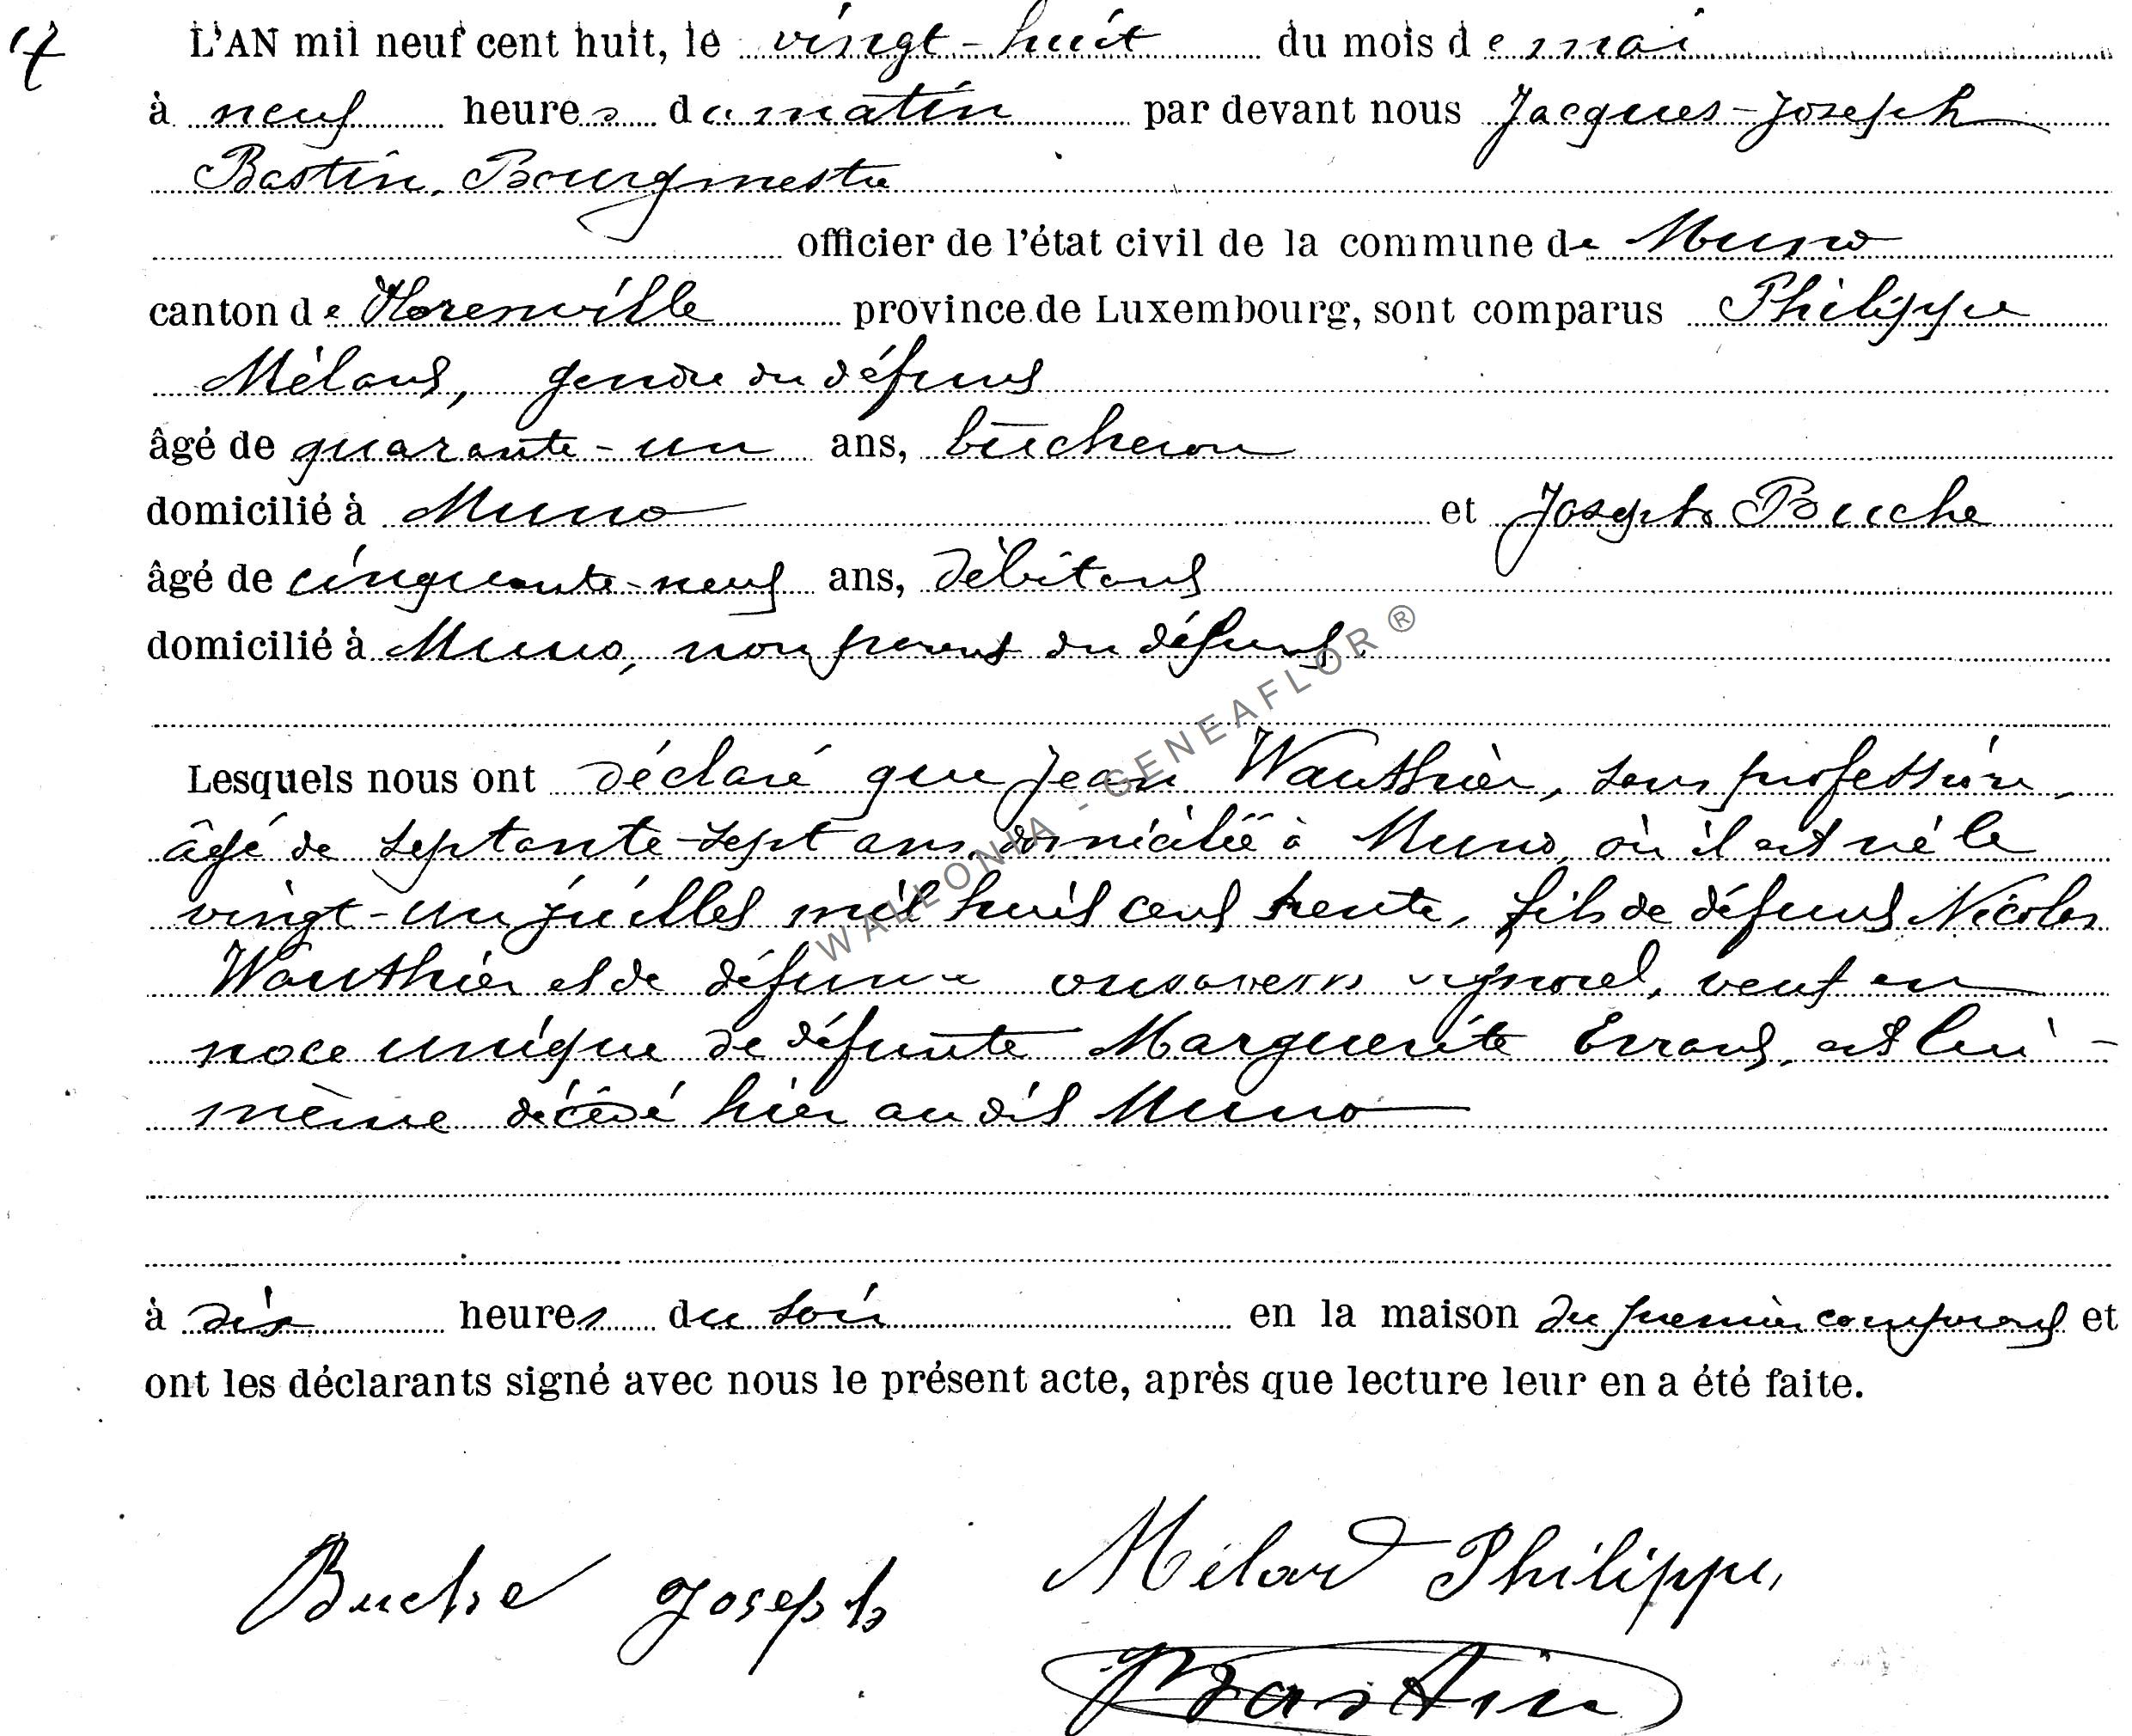 17
L'AN mil neuf cent huit, le vingt-huit du mois de mai
à neuf heures du matin par devant nous Jacques-Joseph
Bastin, Bourgmestre
officier de l'état civil de la commune de Muno
canton de Florenville province de Luxembourg, sont comparus Philippe
Mélard, gendre du défunt
âgé de quarante-un ans, bûcheron
domicilié à Muno et Joseph Buche
âgé de cinquante-neuf ans, débitant
domicilié à Muno, non parent du défunt.
Lesquels nous ont déclaré que Jean Wauthier, sans profession,
âgé de septante-sept ans, domicilié à Muno, où il est né le
vingt-un juillet mil huit cent trente, fils de défunt Nicolas
Wauthier et de défunte veuf en
noce unique de défunte Marguerite Errard, est lui-
même décédé hier au dit Muno
à dix heures du soir en la maison du premier comparant et
ont les déclarants signé avec nous le présent acte, après que lecture leur en a été faite.
Buche Joseph Mélard Philippe,
Bastin
WALLONIA - GENEAFLOR ®